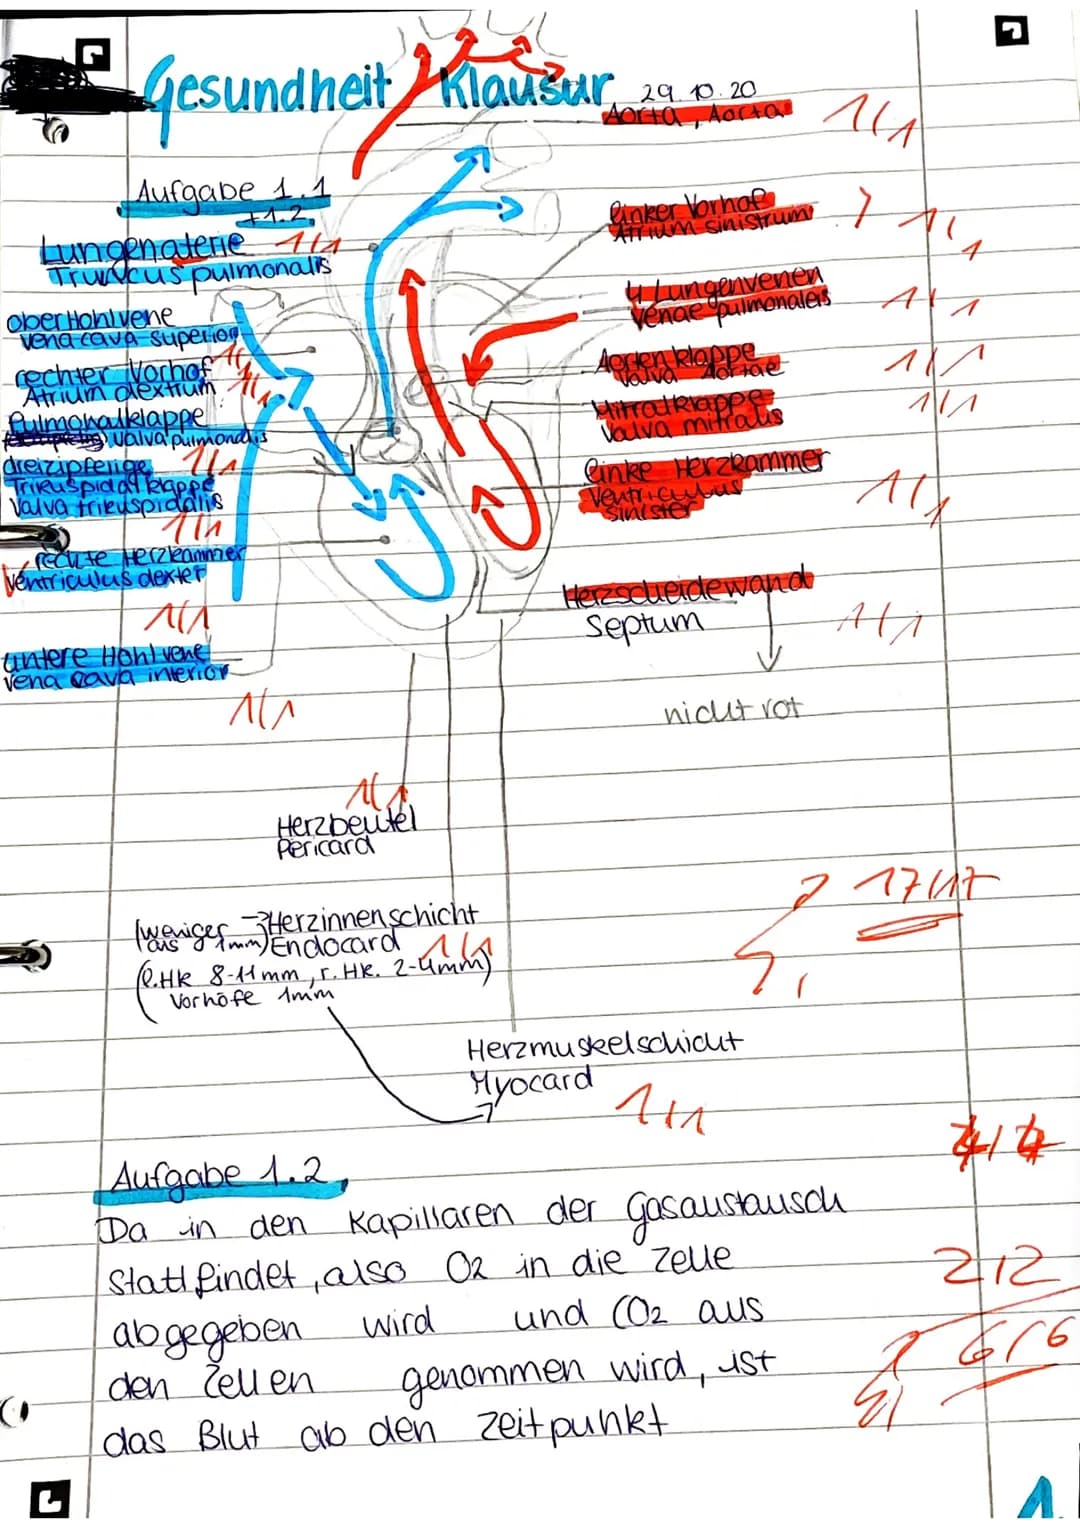 Gesundheit Klausur 29.10.20
Aorta, Aorta 1/1
Aufgabe 1.1
+1.2
Lungenaterie 1/1
Truncus pulmonalis
ober Hohlvene
vena cava superior
1/1
rechter Vorhof
Atrium dextrium
1/1
Pulmonalklappe
valva pulmonalis
dreizipfelige 1/1
Trikuspidal klappe
Valva trikuspidalis
1/1
rechte Herzkammer
Ventriculus dexter
1/1
untere Hohlvene
vena cava interior
1/1
linker Vorhof
Atrium sinistrum
1/1
4 Lungenvenen
Venae pulmonaleis
1/1
Aortenklappe
Valva Aortae
1/1
Mitralklappe
Valva mitralis
1/1
linke Herzkammer
Ventriculus
sinister
1/1
Herzscheidewand
Septum
1/1
nicht rot
1/1
Herzbeutel
Pericard
17/17
(weniger → Herzinnenschicht
als 1mm) Endocard 1/1
(l.HK 8-11mm, r. HK. 2-4mm)
Vorhöfe 1mm
Herzmuskelschicht
Myocard
1/1
4/4
Aufgabe 1.2
Da in den Kapillaren der Gasaustausch
Statt findet, also O2 in die Zelle
2/2
abgegeben wird und CO2 aus
6/6
den Zellen genommen wird, ist
das Blut ab den Zeitpunkt
1.